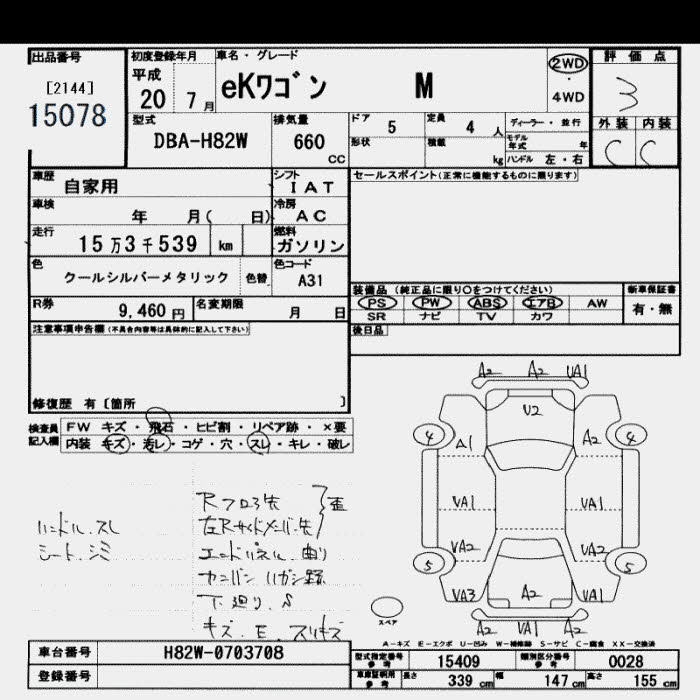 出品番号
[2144]
15078
初度登録年月
平成
20 7月
車名・グレード
eKワゴン M
2WD
・
4WD
評価点
3
外装 内装
C C
型式
DBA-H82W
排気量
660
CC
ドア 5
定員 4 人
形状
積載 kg
ディーラー・並行
モデル年式 年
ハンドル 左・右
車歴
自家用
シフト
IAT
車検
年 月( 日)
冷房
AC
走行
15万3千539 km
燃料
ガソリン
色
クールシルバーメタリック
色替
色コード
A31
R券
9,460円
名変期限
月 日
注意事項申告欄(不具合内容等は具体的に記入して下さい)
修復歴 有〔箇所 〕
セールスポイント(正常に機能するものに限ります)
装備品(純正品に限り○をつけてください)
PS PW ABS エアB AW
SR ナビ TV カワ
新車保証書
有・無
後日品
検査員記入欄
FW キズ・飛石・ヒビ割・リペア跡・×要
内装 キズ・汚レ・コゲ・穴・スレ・キレ・破レ
ハンドル スレ
シート シミ
Rフロア先
左Rサイドメンバー先
歪
エンドパネル 曲り
下廻り S
キズ E スリキズ
A2 A2 VA1
V2
4 4
A1 A2
VA1 VA1
VA2 VA2
5 5
VA3 A2 VA1
A2 VA1 A2
スペア
A-キズ E-エクボ U-凹み W-補修跡 S-サビ C-腐食 XX-交換済
車台番号
H82W-0703708
登録番号
型式指定番号
参考
15409
類別区分番号
参考
0028
車庫証明用
参考
長さ 339 cm
幅 147 cm
高さ 155 cm